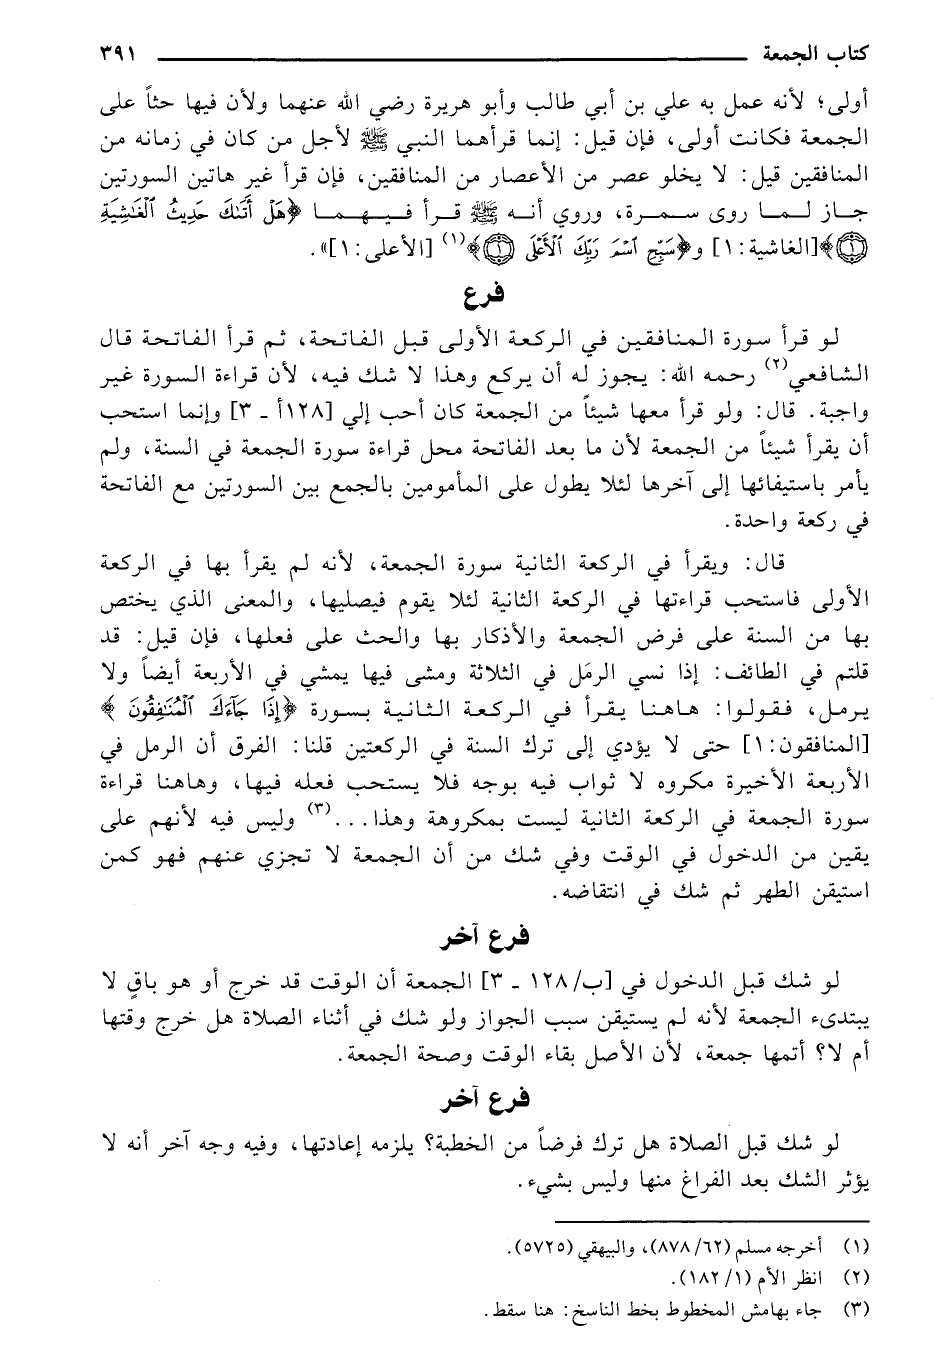 كتاب الجمعة ٣٩١
أولى؛ لأنه عمل به علي بن أبي طالب وأبو هريرة رضي الله عنهما ولأن فيها حثاً على
الجمعة فكانت أولى، فإن قيل: إنما قرأهما النبي ﷺ لأجل من كان في زمانه من
المنافقين قيل: لا يخلو عصر من الأعصار من المنافقين، فإن قرأ غير هاتين السورتين
جاز لما روى سمرة، وروي أنه ﷺ قرأ فيهما ﴿هَلْ أَتَىٰكَ حَدِيثُ ٱلْغَٰشِيَةِ
﴿١﴾﴾[الغاشية: ١] و﴿سَبِّحِ ٱسْمَ رَبِّكَ ٱلْأَعْلَى ﴿١﴾﴾(١) [الأعلى: ١]».
فرع
لو قرأ سورة المنافقين في الركعة الأولى قبل الفاتحة، ثم قرأ الفاتحة قال
الشافعي(٢) رحمه الله: يجوز له أن يركع وهذا لا شك فيه، لأن قراءة السورة غير
واجبة. قال: ولو قرأ معها شيئاً من الجمعة كان أحب إلي [١٢٨أ ـ ٣] وإنما استحب
أن يقرأ شيئاً من الجمعة لأن ما بعد الفاتحة محل قراءة سورة الجمعة في السنة، ولم
يأمر باستيفائها إلى آخرها لئلا يطول على المأمومين بالجمع بين السورتين مع الفاتحة
في ركعة واحدة.
قال: ويقرأ في الركعة الثانية سورة الجمعة، لأنه لم يقرأ بها في الركعة
الأولى فاستحب قراءتها في الركعة الثانية لئلا يقوم فيصليها، والمعنى الذي يختص
بها من السنة على فرض الجمعة والأذكار بها والحث على فعلها، فإن قيل: قد
قلتم في الطائف: إذا نسي الرمَل في الثلاثة ومشى فيها يمشي في الأربعة أيضاً ولا
يرمل، فقولوا: هاهنا يقرأ في الركعة الثانية بسورة ﴿إِذَا جَآءَكَ ٱلْمُنَٰفِقُونَ ﴾
[المنافقون: ١] حتى لا يؤدي إلى ترك السنة في الركعتين قلنا: الفرق أن الرمل في
الأربعة الأخيرة مكروه لا ثواب فيه بوجه فلا يستحب فعله فيها، وهاهنا قراءة
سورة الجمعة في الركعة الثانية ليست بمكروهة وهذا...(٣) وليس فيه لأنهم على
يقين من الدخول في الوقت وفي شك من أن الجمعة لا تجزي عنهم فهو كمن
استيقن الطهر ثم شك في انتقاضه.
فرع آخر
لو شك قبل الدخول في [ب/١٢٨ ـ ٣] الجمعة أن الوقت قد خرج أو هو باقٍ لا
يبتدىء الجمعة لأنه لم يستيقن سبب الجواز ولو شك في أثناء الصلاة هل خرج وقتها
أم لا؟ أتمها جمعة، لأن الأصل بقاء الوقت وصحة الجمعة.
فرع آخر
لو شك قبل الصلاة هل ترك فرضاً من الخطبة؟ يلزمه إعادتها، وفيه وجه آخر أنه لا
يؤثر الشك بعد الفراغ منها وليس بشيء.
(١) أخرجه مسلم (٦٢/ ٨٧٨)، والبيهقي (٥٧٢٥).
(٢) انظر الأم (١/ ١٨٢).
(٣) جاء بهامش المخطوط بخط الناسخ: هنا سقط.